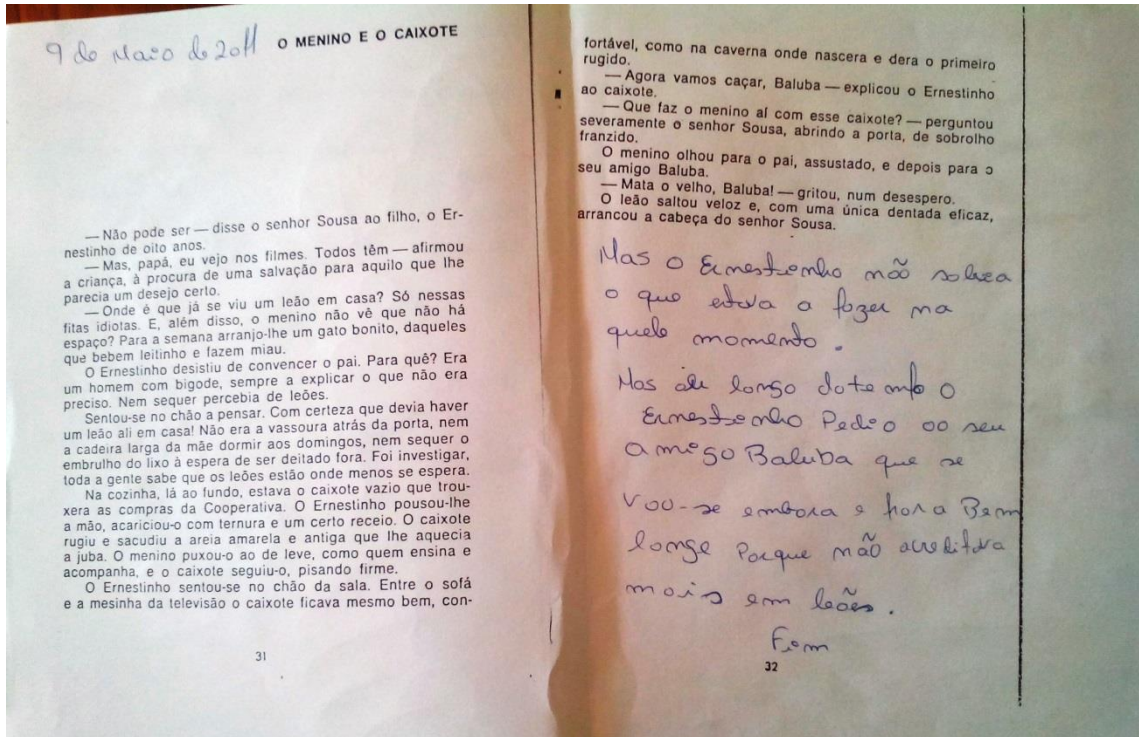 9 de Maio de 2011
O MENINO E O CAIXOTE
— Não pode ser — disse o senhor Sousa ao filho, o Er-
nestinho de oito anos.
— Mas, papá, eu vejo nos filmes. Todos têm — afirmou
a criança, à procura de uma salvação para aquilo que lhe
parecia um desejo certo.
— Onde é que já se viu um leão em casa? Só nessas
fitas idiotas. E, além disso, o menino não vê que não há
espaço? Para a semana arranjo-lhe um gato bonito, daqueles
que bebem leitinho e fazem miau.
O Ernestinho desistiu de convencer o pai. Para quê? Era
um homem com bigode, sempre a explicar o que não era
preciso. Nem sequer percebia de leões.
Sentou-se no chão a pensar. Com certeza que devia haver
um leão ali em casa! Não era a vassoura atrás da porta, nem
a cadeira larga da mãe dormir aos domingos, nem sequer o
embrulho do lixo à espera de ser deitado fora. Foi investigar,
toda a gente sabe que os leões estão onde menos se espera.
Na cozinha, lá ao fundo, estava o caixote vazio que trou-
xera as compras da Cooperativa. O Ernestinho pousou-lhe
a mão, acariciou-o com ternura e um certo receio. O caixote
rugiu e sacudiu a areia amarela e antiga que lhe aquecia
a juba. O menino puxou-o ao de leve, como quem ensina e
acompanha, e o caixote seguiu-o, pisando firme.
O Ernestinho sentou-se no chão da sala. Entre o sofá
e a mesinha da televisão o caixote ficava mesmo bem, con-
31
fortável, como na caverna onde nascera e dera o primeiro
rugido.
— Agora vamos caçar, Baluba — explicou o Ernestinho
ao caixote.
— Que faz o menino aí com esse caixote? — perguntou
severamente o senhor Sousa, abrindo a porta, de sobrolho
franzido.
O menino olhou para o pai, assustado, e depois para o
seu amigo Baluba.
— Mata o velho, Baluba! — gritou, num desespero.
O leão saltou veloz e, com uma única dentada eficaz,
arrancou a cabeça do senhor Sousa.
Mas o Ernestinho não
o que estava a fazer na
quele momento.
Mas longo do tempo o
Ernestinho Pedio ao seu
amigo Baluba que se
embora e Bem
longe Porque não acreditava
mais em leões.
Fim
32